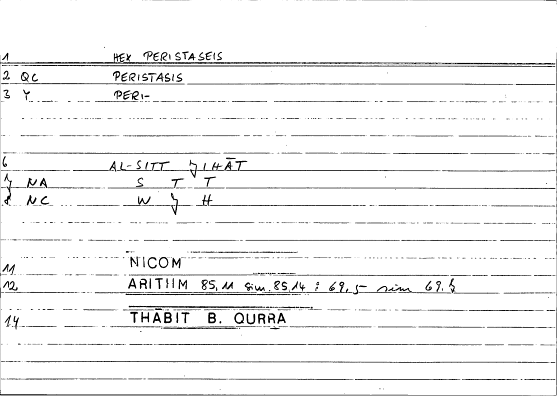 1 HEX PERISTASEIS
2 QC PERISTASIS
3 Y PERI-
6 AL-SITT ǦIHĀT
7 NA S T T
8 NC W Ǧ H
11 NICOM
12 ARITIIM 85,11 sim. 85,14 : 69,5 sim 69,8
14 THĀBIT B. QURRA